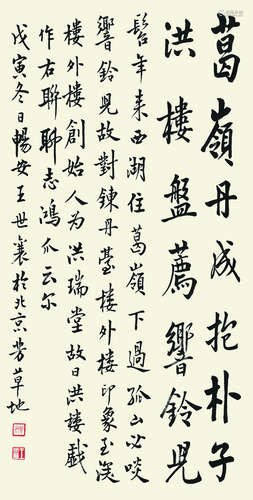 葛嶺丹成抱朴子
洪樓盤薦響鈴兒
髫年来西湖住葛嶺下過孤山必啖
響鈴兒故對鍊丹臺樓外樓印象至深
樓外樓創始人为洪瑞堂故曰洪樓戲
作右聯聊志鴻爪云尔
戊寅冬日暢安王世襄於北京芳草地